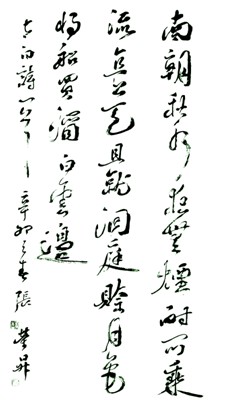 南湖秋水夜無煙耐可乘
流直上天且就洞庭賒月色
將船買酒白雲邊
太白詩一首辛卯之春張